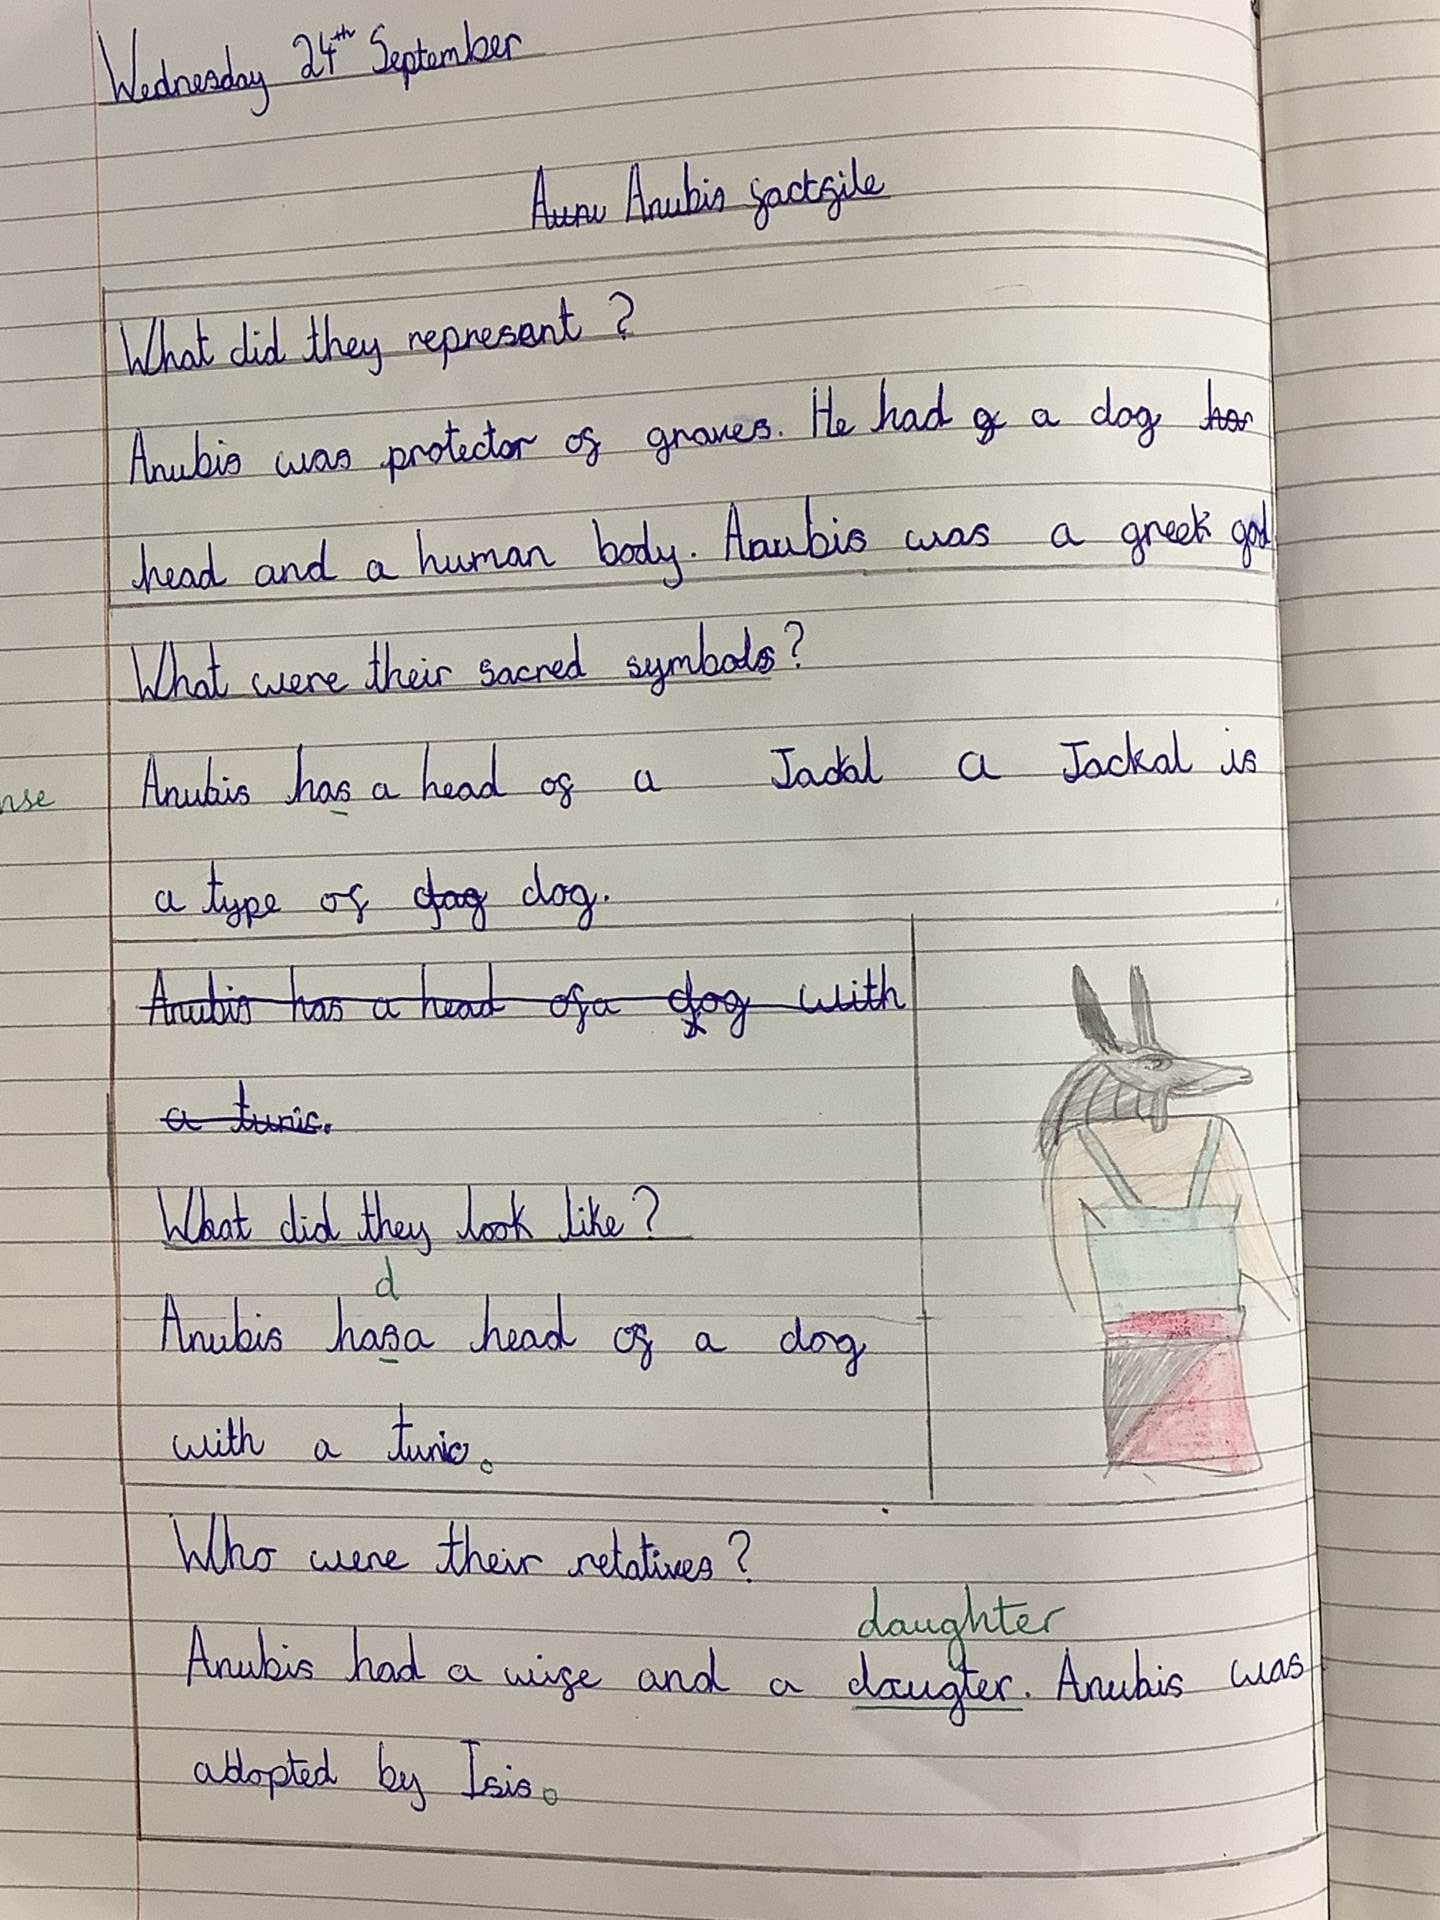 Wednesday 24th September
Aunu Anubis factfile
What did they represent ?
Anubis was protector of graves. He had g a dog har
head and a human body. Anubis was a greek god
What were their sacred symbols?
nse
Anubis has a head of a Jackal a Jackal is
a type of dag dog.
Anubis has a head of a dog with
a tunic.
What did they look like?
d
Anubis hasa head of a dog
with a tunic.
Who were their relatives?
daughter
Anubis had a wife and a daugter. Anubis was
adopted by Isis.